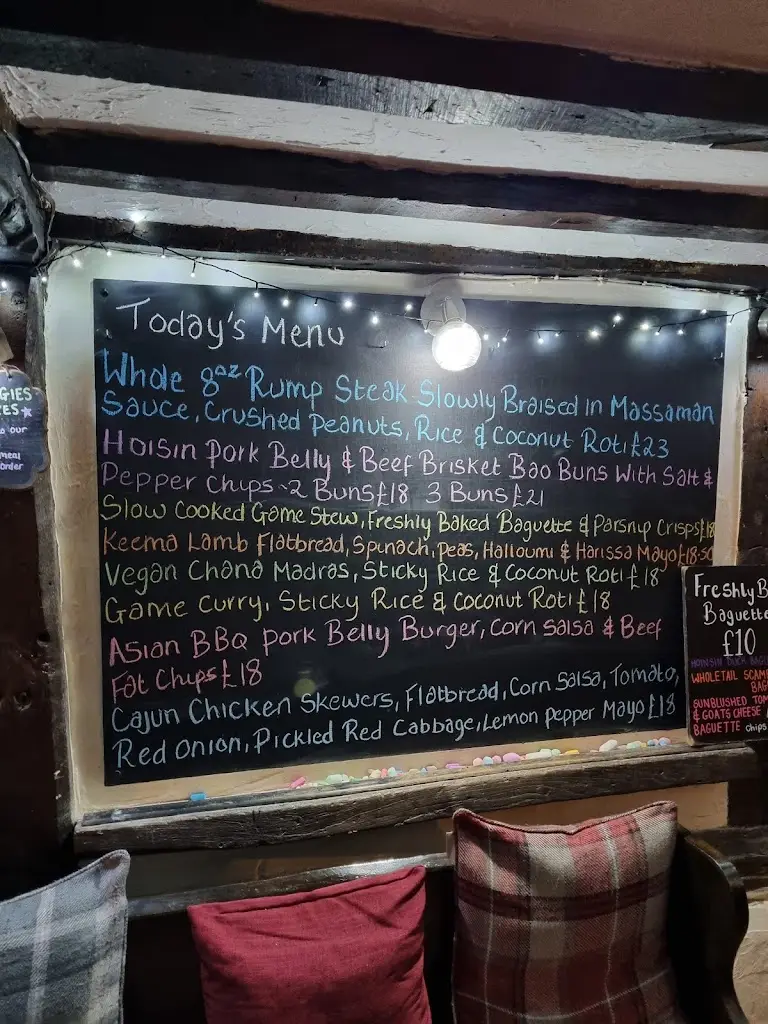 Today's Menu
Whole 8oz Rump Steak Slowly Braised in Massaman
Sauce, Crushed Peanuts, Rice & Coconut Roti £23
Hoisin Pork Belly & Beef Brisket Bao Buns With Salt &
Pepper Chips - 2 Buns £18 3 Buns £21
Slow Cooked Game Stew, Freshly Baked Baguette & Parsnip Crisps £18
Keema Lamb Flatbread, Spinach, Peas, Halloumi & Harissa Mayo £18.50
Vegan Chana Madras, Sticky Rice & Coconut Roti £18
Game Curry, Sticky Rice & Coconut Roti £18
Asian BBQ Pork Belly Burger, Corn Salsa & Beef
Fat Chips £18
Cajun Chicken Skewers, Flatbread, Corn Salsa, Tomato,
Red Onion, Pickled Red Cabbage, Lemon Pepper Mayo £18
Freshly B
Baguette
£10
HOISIN DUCK BAGU
WHOLETAIL SCAMP
BAG
SUNBLUSHED TOM
& GOATS CHEESE
BAGUETTE chips
GIES
ES
o our
meal
order